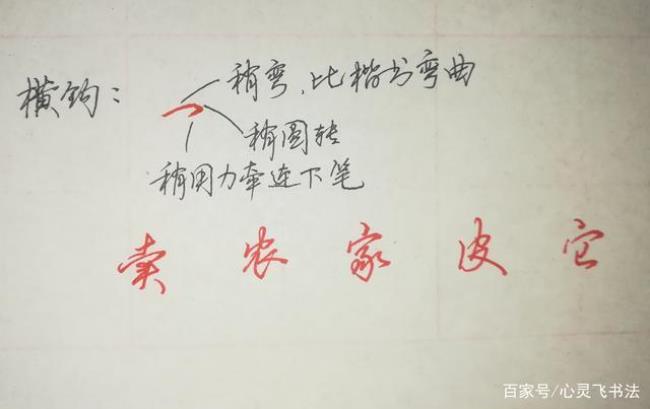 横钩：
稍弯，比楷书弯曲
稍圆转
稍用力牵连下笔
卖 农 家 皮 它
百家号/心灵飞书法